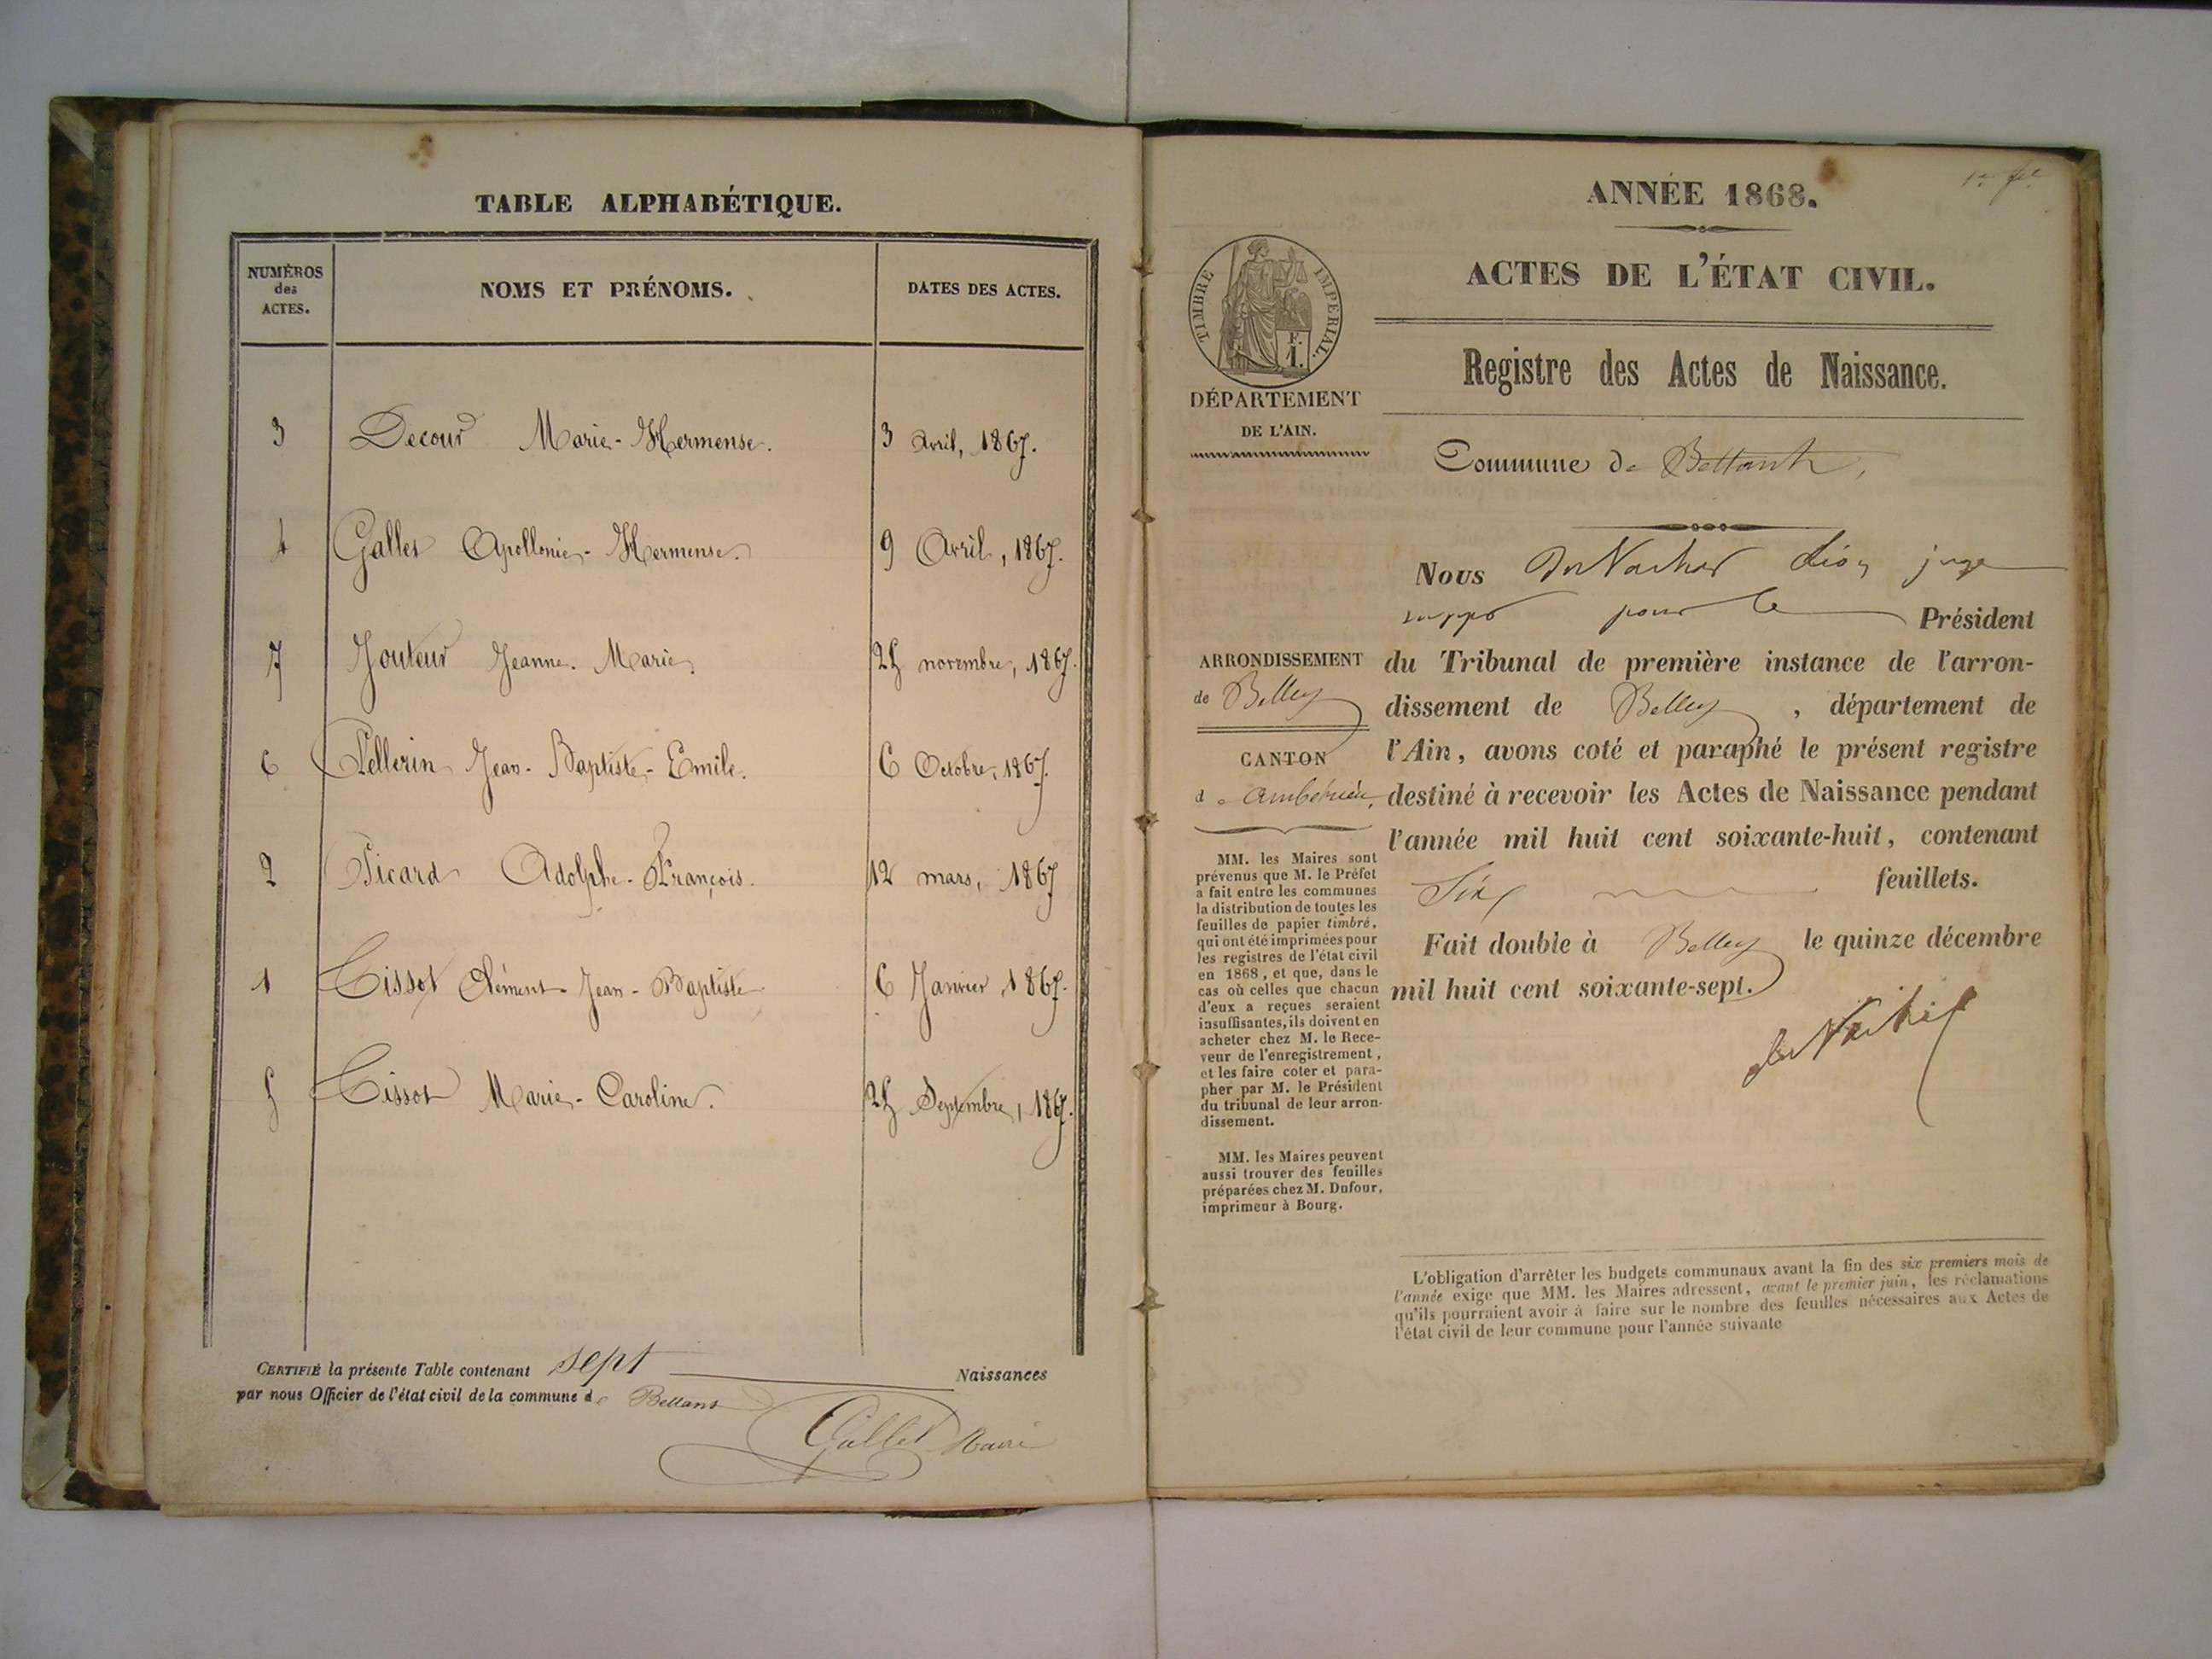 TABLE ALPHABÉTIQUE.
NUMÉROS
des
ACTES.
NOMS ET PRÉNOMS.
DATES DES ACTES.
3 Decour Marie-Hermense. 3 avril, 1867.
4 Gallet Apollonie-Hermense. 9 Avril, 1867.
7 Jouteur Jeanne-Marie. 25 novembre, 1867.
6 Pellerin Jean-Baptiste-Emile. 6 Octobre, 1867.
2 Picard Adolphe-François. 12 mars, 1867
1 Tissot Clément-Jean-Baptiste. 6 Janvier, 1867.
5 Tissot Marie-Caroline. 25 Septembre, 1867.
CERTIFIÉ la présente Table contenant sept Naissances
par nous Officier de l'état civil de la commune de Bettant
Gallet Maire
ANNÉE 1868.
TIMBRE IMPÉRIAL.
F.
1.
ACTES DE L'ÉTAT CIVIL.
Registre des Actes de Naissance.
DÉPARTEMENT
DE L'AIN.
Commune de Bettant,
Nous Léon juge
supp pour le Président
du Tribunal de première instance de l'arron-
dissement de Belley, département de
l'Ain, avons coté et paraphé le présent registre
destiné à recevoir les Actes de Naissance pendant
l'année mil huit cent soixante-huit, contenant
Six feuillets.
Fait double à Belley le quinze décembre
mil huit cent soixante-sept.
ARRONDISSEMENT
de Belley
CANTON
d'ambérieu,
MM. les Maires sont
prévenus que M. le Préfet
a fait entre les communes
la distribution de toutes les
feuilles de papier timbré,
qui ont été imprimées pour
les registres de l'état civil
en 1868, et que, dans le
cas où celles que chacun
d'eux a reçues seraient
insuffisantes, ils doivent en
acheter chez M. le Rece-
veur de l'enregistrement,
et les faire coter et para-
pher par M. le Président
du tribunal de leur arron-
dissement.
MM. les Maires peuvent
aussi trouver des feuilles
préparées chez M. Dufour,
imprimeur à Bourg.
L'obligation d'arrêter les budgets communaux avant la fin des six premiers mois de
l'année exige que MM. les Maires adressent, avant le premier juin, les réclamations
qu'ils pourraient avoir à faire sur le nombre des feuilles nécessaires aux Actes de
l'état civil de leur commune pour l'année suivante